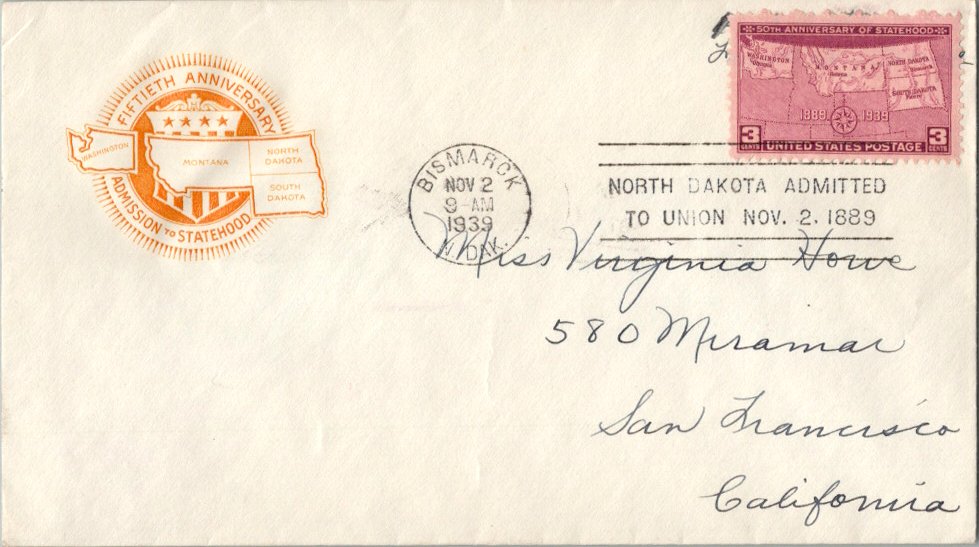 FIFTIETH ANNIVERSARY
WASHINGTON
MONTANA
NORTH
DAKOTA
SOUTH
DAKOTA
ADMISSION TO STATEHOOD
BISMARCK
NOV 2
9-AM
1939
N. DAK.
50TH ANNIVERSARY OF STATEHOOD
WASHINGTON
Olympia
MONTANA
Helena
NORTH DAKOTA
Bismarck
SOUTH DAKOTA
Pierre
1889 1939
3 CENTS
3 CENTS
UNITED STATES POSTAGE
NORTH DAKOTA ADMITTED
TO UNION NOV. 2, 1889
Miss Virginia Howe
580 Miramar
San Francisco
California